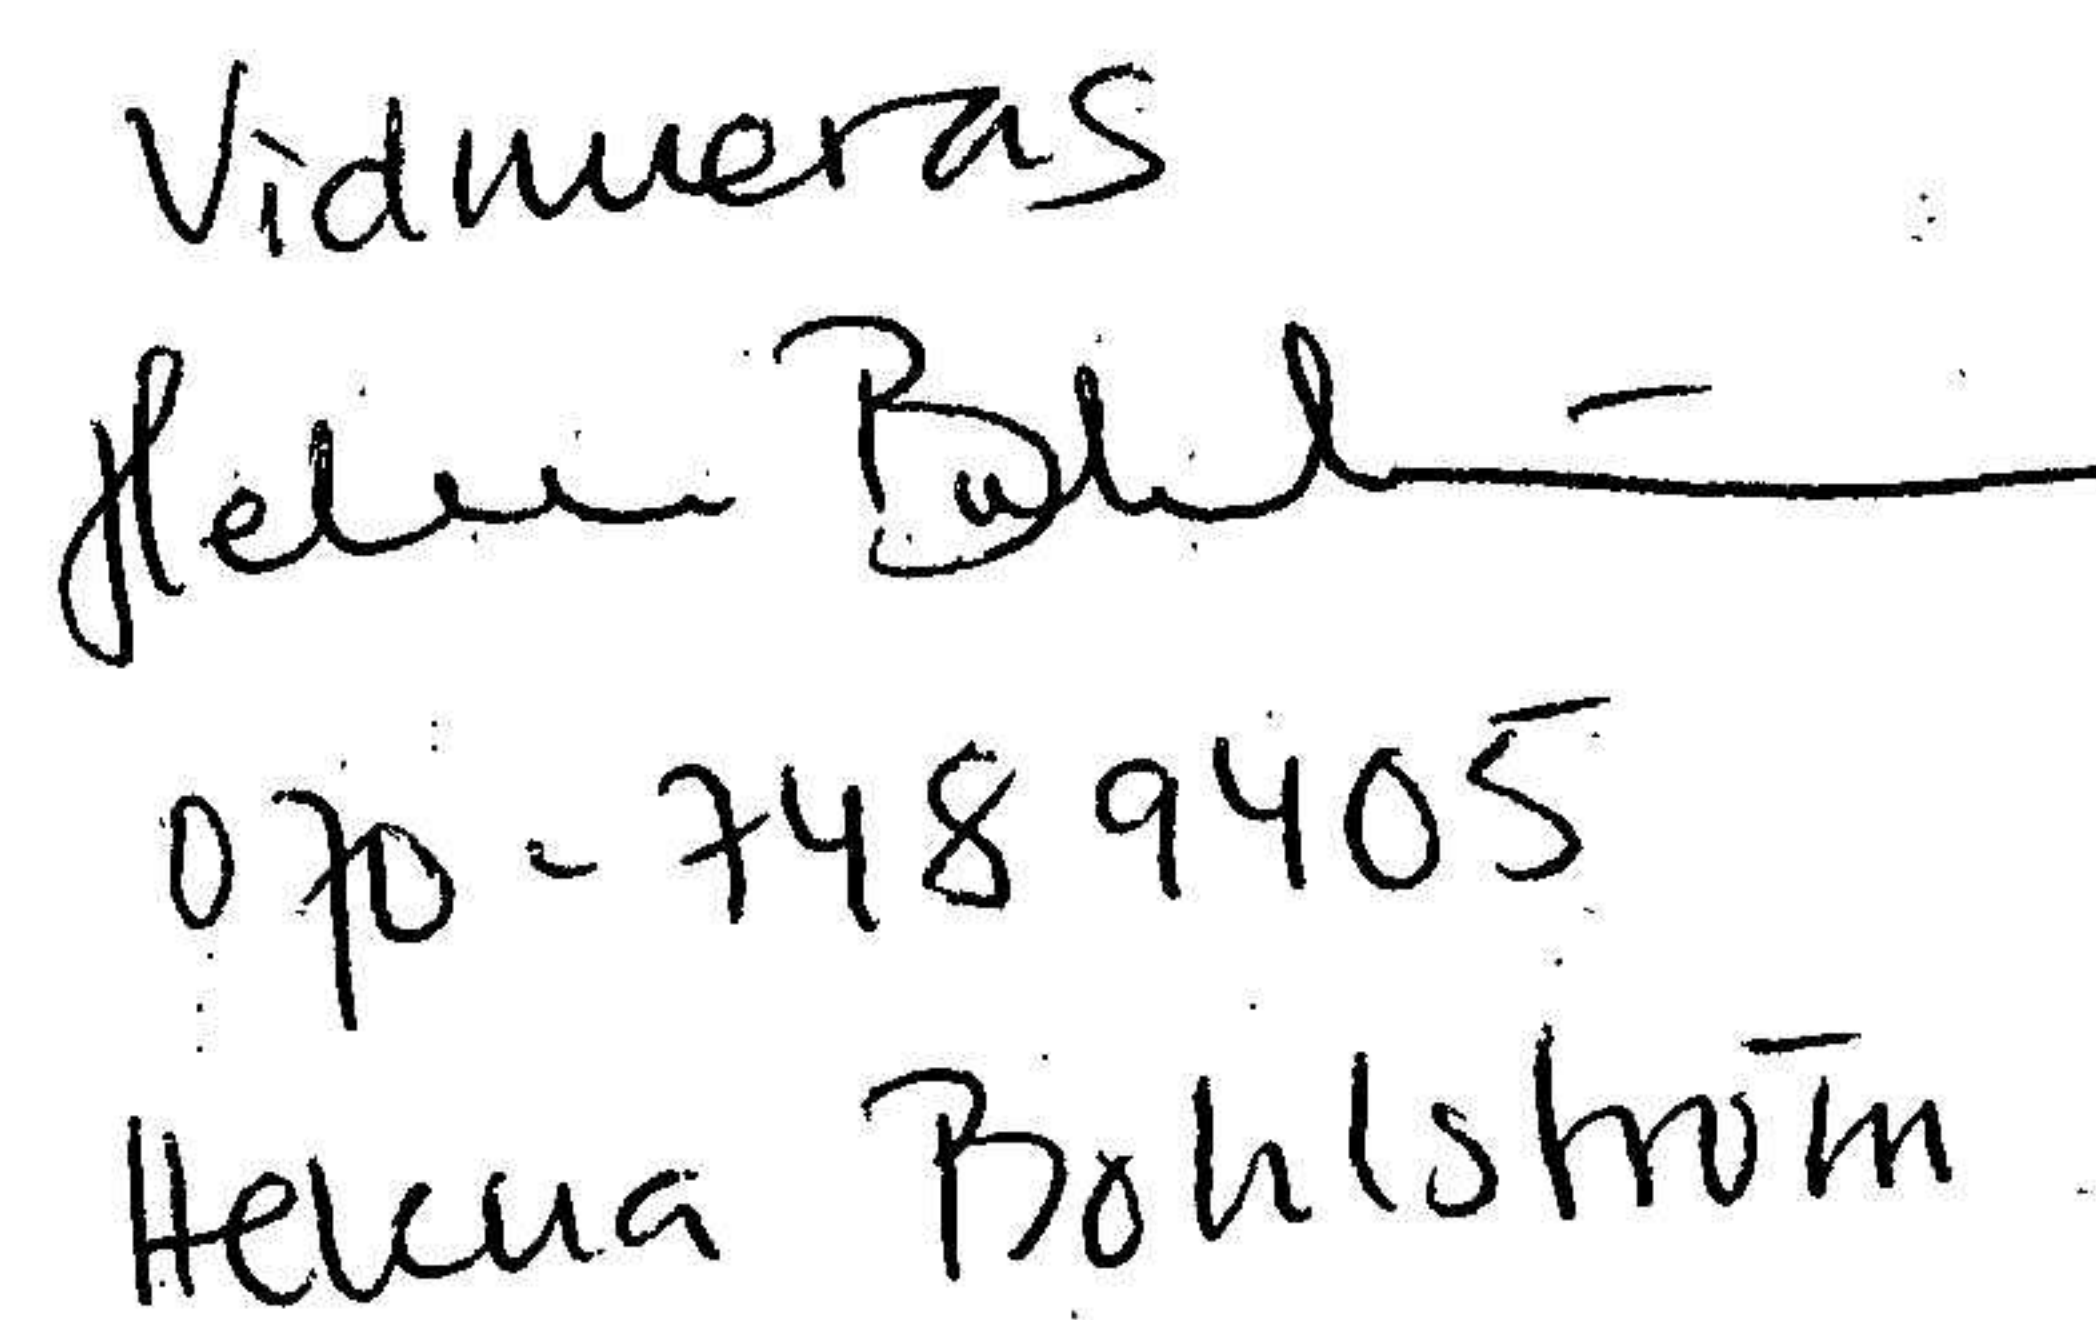 Vidimeras
Helena Bohlström
070-748 9405
Helena Bohlström